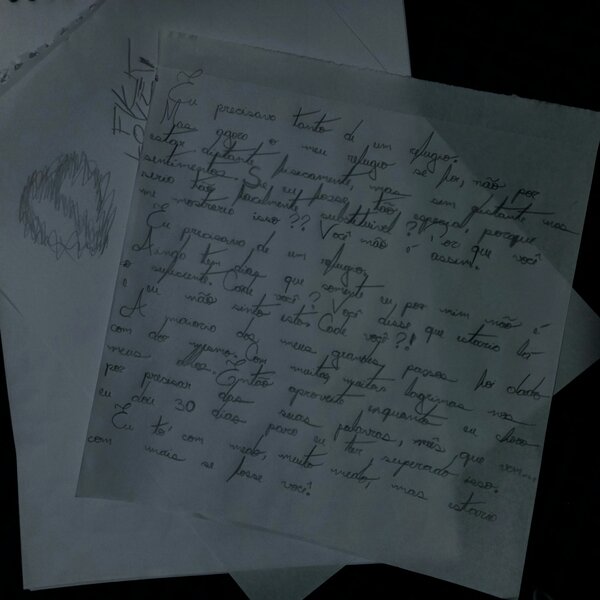 Eu precisava tanto de um refugio.
Mas agora o meu refugio se foi, não por
estar distante fisicamente, mas sem perante nos
sentimentos. Se eu fosse tão especial, porque
seria tão facilmente substituivel? Por que você
me mostraria isso?? Você não é assim.
Eu precisava de um refugio,
Ainda tem dias que somente eu, por mim não é
o suficiente. Cade você? Você disse que estaria la
e eu não sinto estar. Cade você?!
A maioria dos meus grandes passos foi dada
com dor mesmo. Com muitas, muitas lagrimas nos
meus olhos. Então aproveito enquanto eu choro
por precisar das suas palavras, mãe, que
eu dou 30 dias para eu ter superado isso.
Eu tô com medo, muito medo, mas estaria
com mais se fosse você!